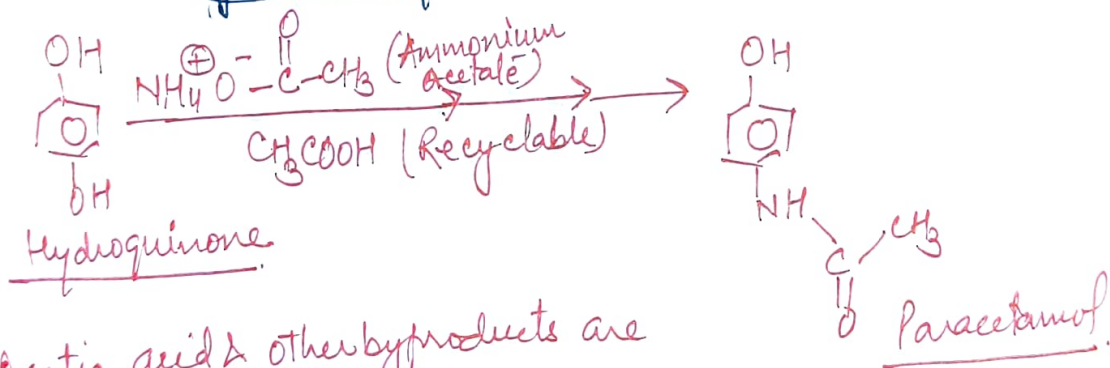 OH
NH4⊕ O⁻ – C(=O) – CH3 (Ammonium
acetate)
CH3COOH (Recyclable)
OH
Hydroquinone
OH
NH
C
CH3
O
Paracetamol.
acid & other byproducts are